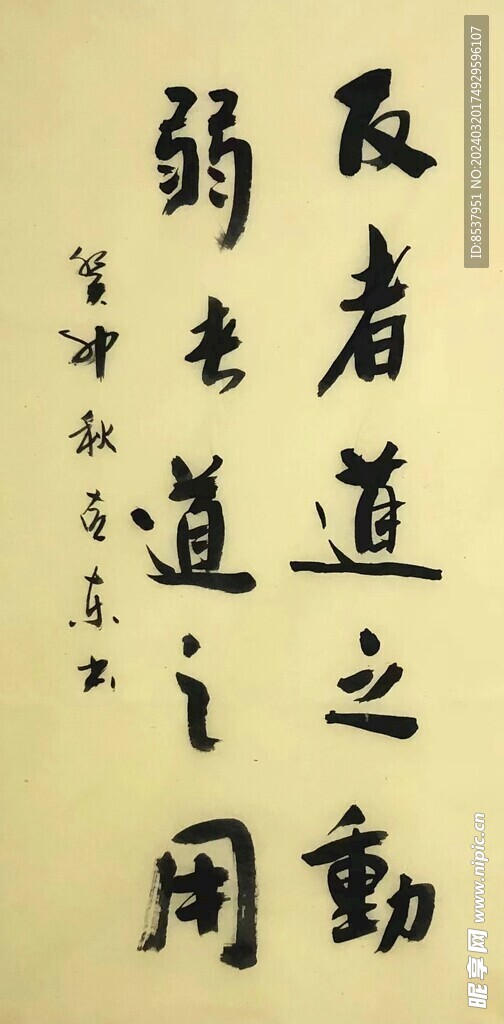 反者道之動
弱者道之用
癸卯秋吉東书
ID:8537951 NO:20240320174929596107
昵享网 www.nipic.cn